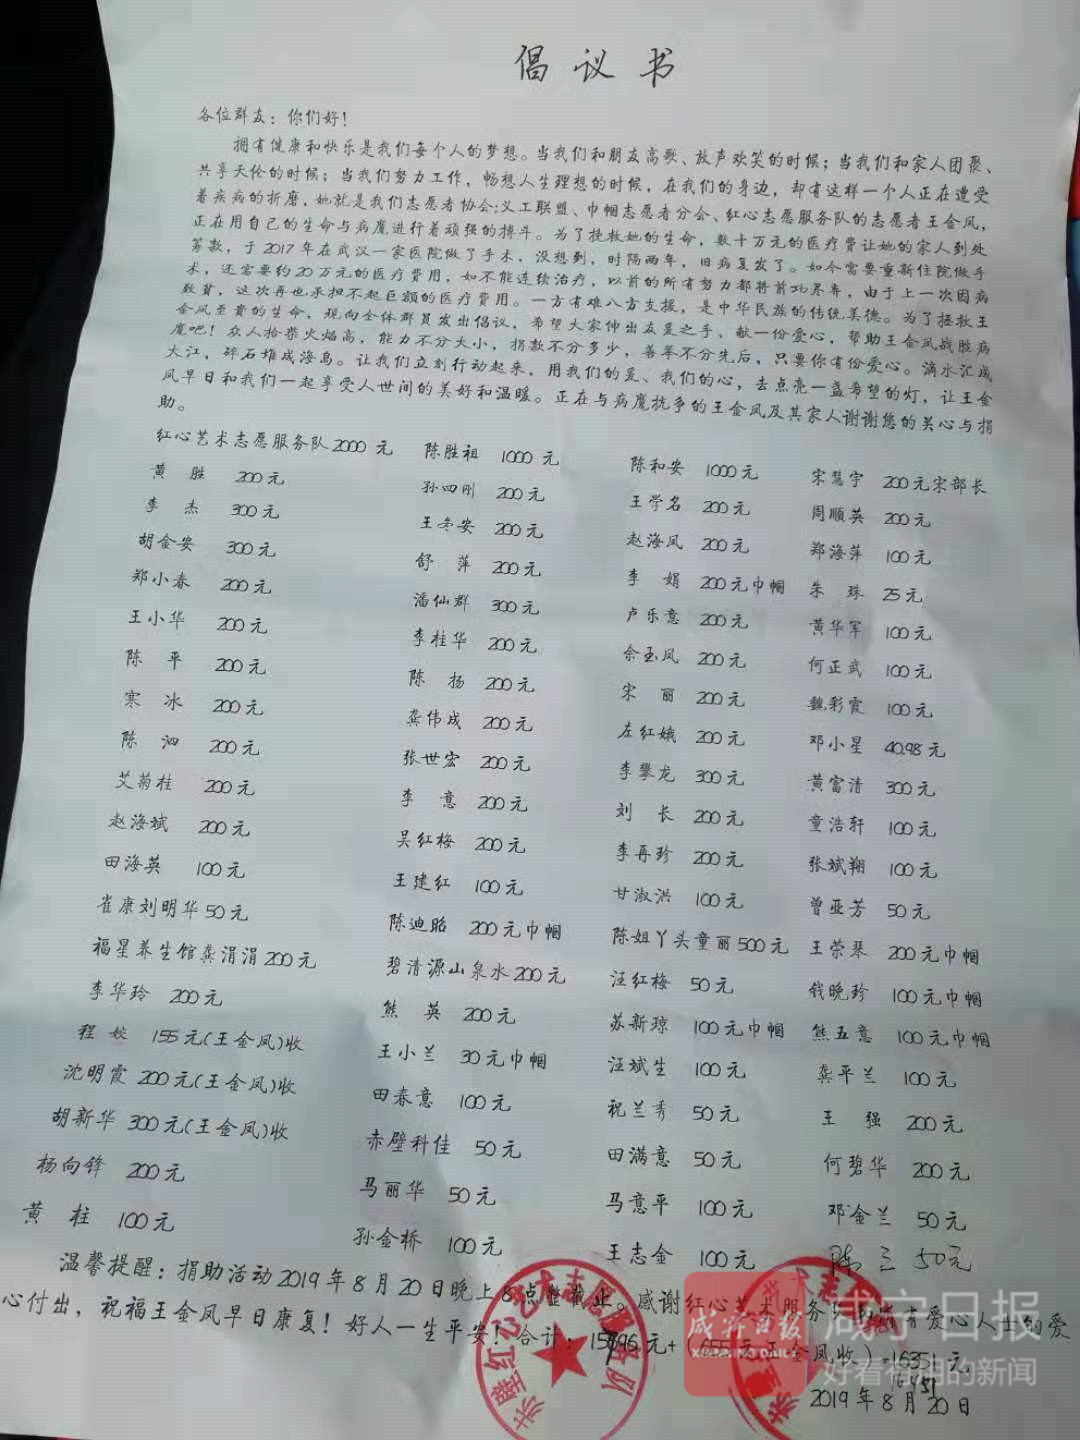 倡议书
各位群友：你们好！
拥有健康和快乐是我们每个人的梦想。当我们和朋友高歌、放声欢笑的时候；当我们和家人团聚、
共享天伦的时候；当我们努力工作，畅想人生理想的时候，在我们的身边，却有这样一个人正在遭受
着疾病的折磨，她就是我们志愿者协会;义工联盟、巾帼志愿者分会、红心志愿服务队的志愿者王金凤，
正在用自己的生命与病魔进行着顽强的搏斗。为了挽救她的生命，数十万元的医疗费让她的家人到处
筹款，于2017年在武汉一家医院做了手术，没想到，时隔两年，旧病复发了。如今需要重新住院做手
术，还需要约20万元的医疗费用，如不能连续治疗，以前的所有努力都将前功尽弃，由于上一次因病
致贫，这次再也承担不起巨额的医疗费用。一方有难八方支援，是中华民族的传统美德。为了拯救王
金凤至贵的生命，现向全体群员发出倡议，希望大家伸出友爱之手、献一份爱心，帮助王金凤战胜病
魔吧！众人拾柴火焰高，能力不分大小，捐款不分多少，善举不分先后，只要你有份爱心。滴水汇成
大江，碎石堆成海岛。让我们立刻行动起来，用我们的爱、我们的心，去点亮一盏希望的灯，让王金
凤早日和我们一起享受人世间的美好和温暖。正在与病魔抗争的王金凤及其家人谢谢您的关心与捐
助。
红心艺术志愿服务队2000元 陈胜祖 1000元 陈和安 1000元 宋慧宇 200元宋部长
黄胜 200元 孙四刚 200元 王学名 200元 周顺英 200元
李杰 300元 王冬安 200元 赵海凤 200元 郑海萍 100元
胡金安 300元 舒萍 200元 李娟 200元巾帼 朱珠 25元
郑小春 200元 潘仙群 300元 卢乐意 200元 黄华军 100元
王小华 200元 李桂华 200元 余玉凤 200元 何正武 100元
陈平 200元 陈扬 200元 宋丽 200元 魏彩霞 100元
寒冰 200元 龚伟成 200元 左红娥 200元 邓小星 40.98元
陈泗 200元 张世宏 200元 李攀龙 300元 黄富清 300元
艾菊桂 200元 李意 200元 刘长 200元 童浩轩 100元
赵海斌 200元 吴红梅 200元 李再珍 200元 张斌翔 100元
田海英 100元 王建红 100元 甘淑洪 100元 曾亚芳 50元
崔康刘明华50元 陈迪昭 200元巾帼 陈姐丫头童丽500元 王荣琴 200元巾帼
福星养生馆龚涓涓200元 碧清源山泉水200元 汪红梅 50元 钱晚珍 100元巾帼
李华玲 200元 熊英 200元 苏新琼 100元巾帼 熊五意 100元巾帼
程姣 155元(王金凤)收 王小兰 30元巾帼 汪斌生 100元 龚平兰 100元
沈明霞 200元(王金凤)收 田春意 100元 祝兰秀 50元 王强 200元
胡新华 300元(王金凤)收 赤壁科佳 50元 田满意 50元 何碧华 200元
杨向锋 200元 马丽华 50元 马意平 100元 邓金兰 50元
黄柱 100元 孙金桥 100元 王志金 100元 陈三 50元
温馨提醒：捐助活动2019年8月20日晚上8点整截止。感谢红心艺术服务队和所有爱心人士的爱
心付出，祝福王金凤早日康复！好人一生平安！合计：元+(655元王金凤收)=16351元
2019年8月20日
咸宁日报
咸宁日报
好看有用的新闻